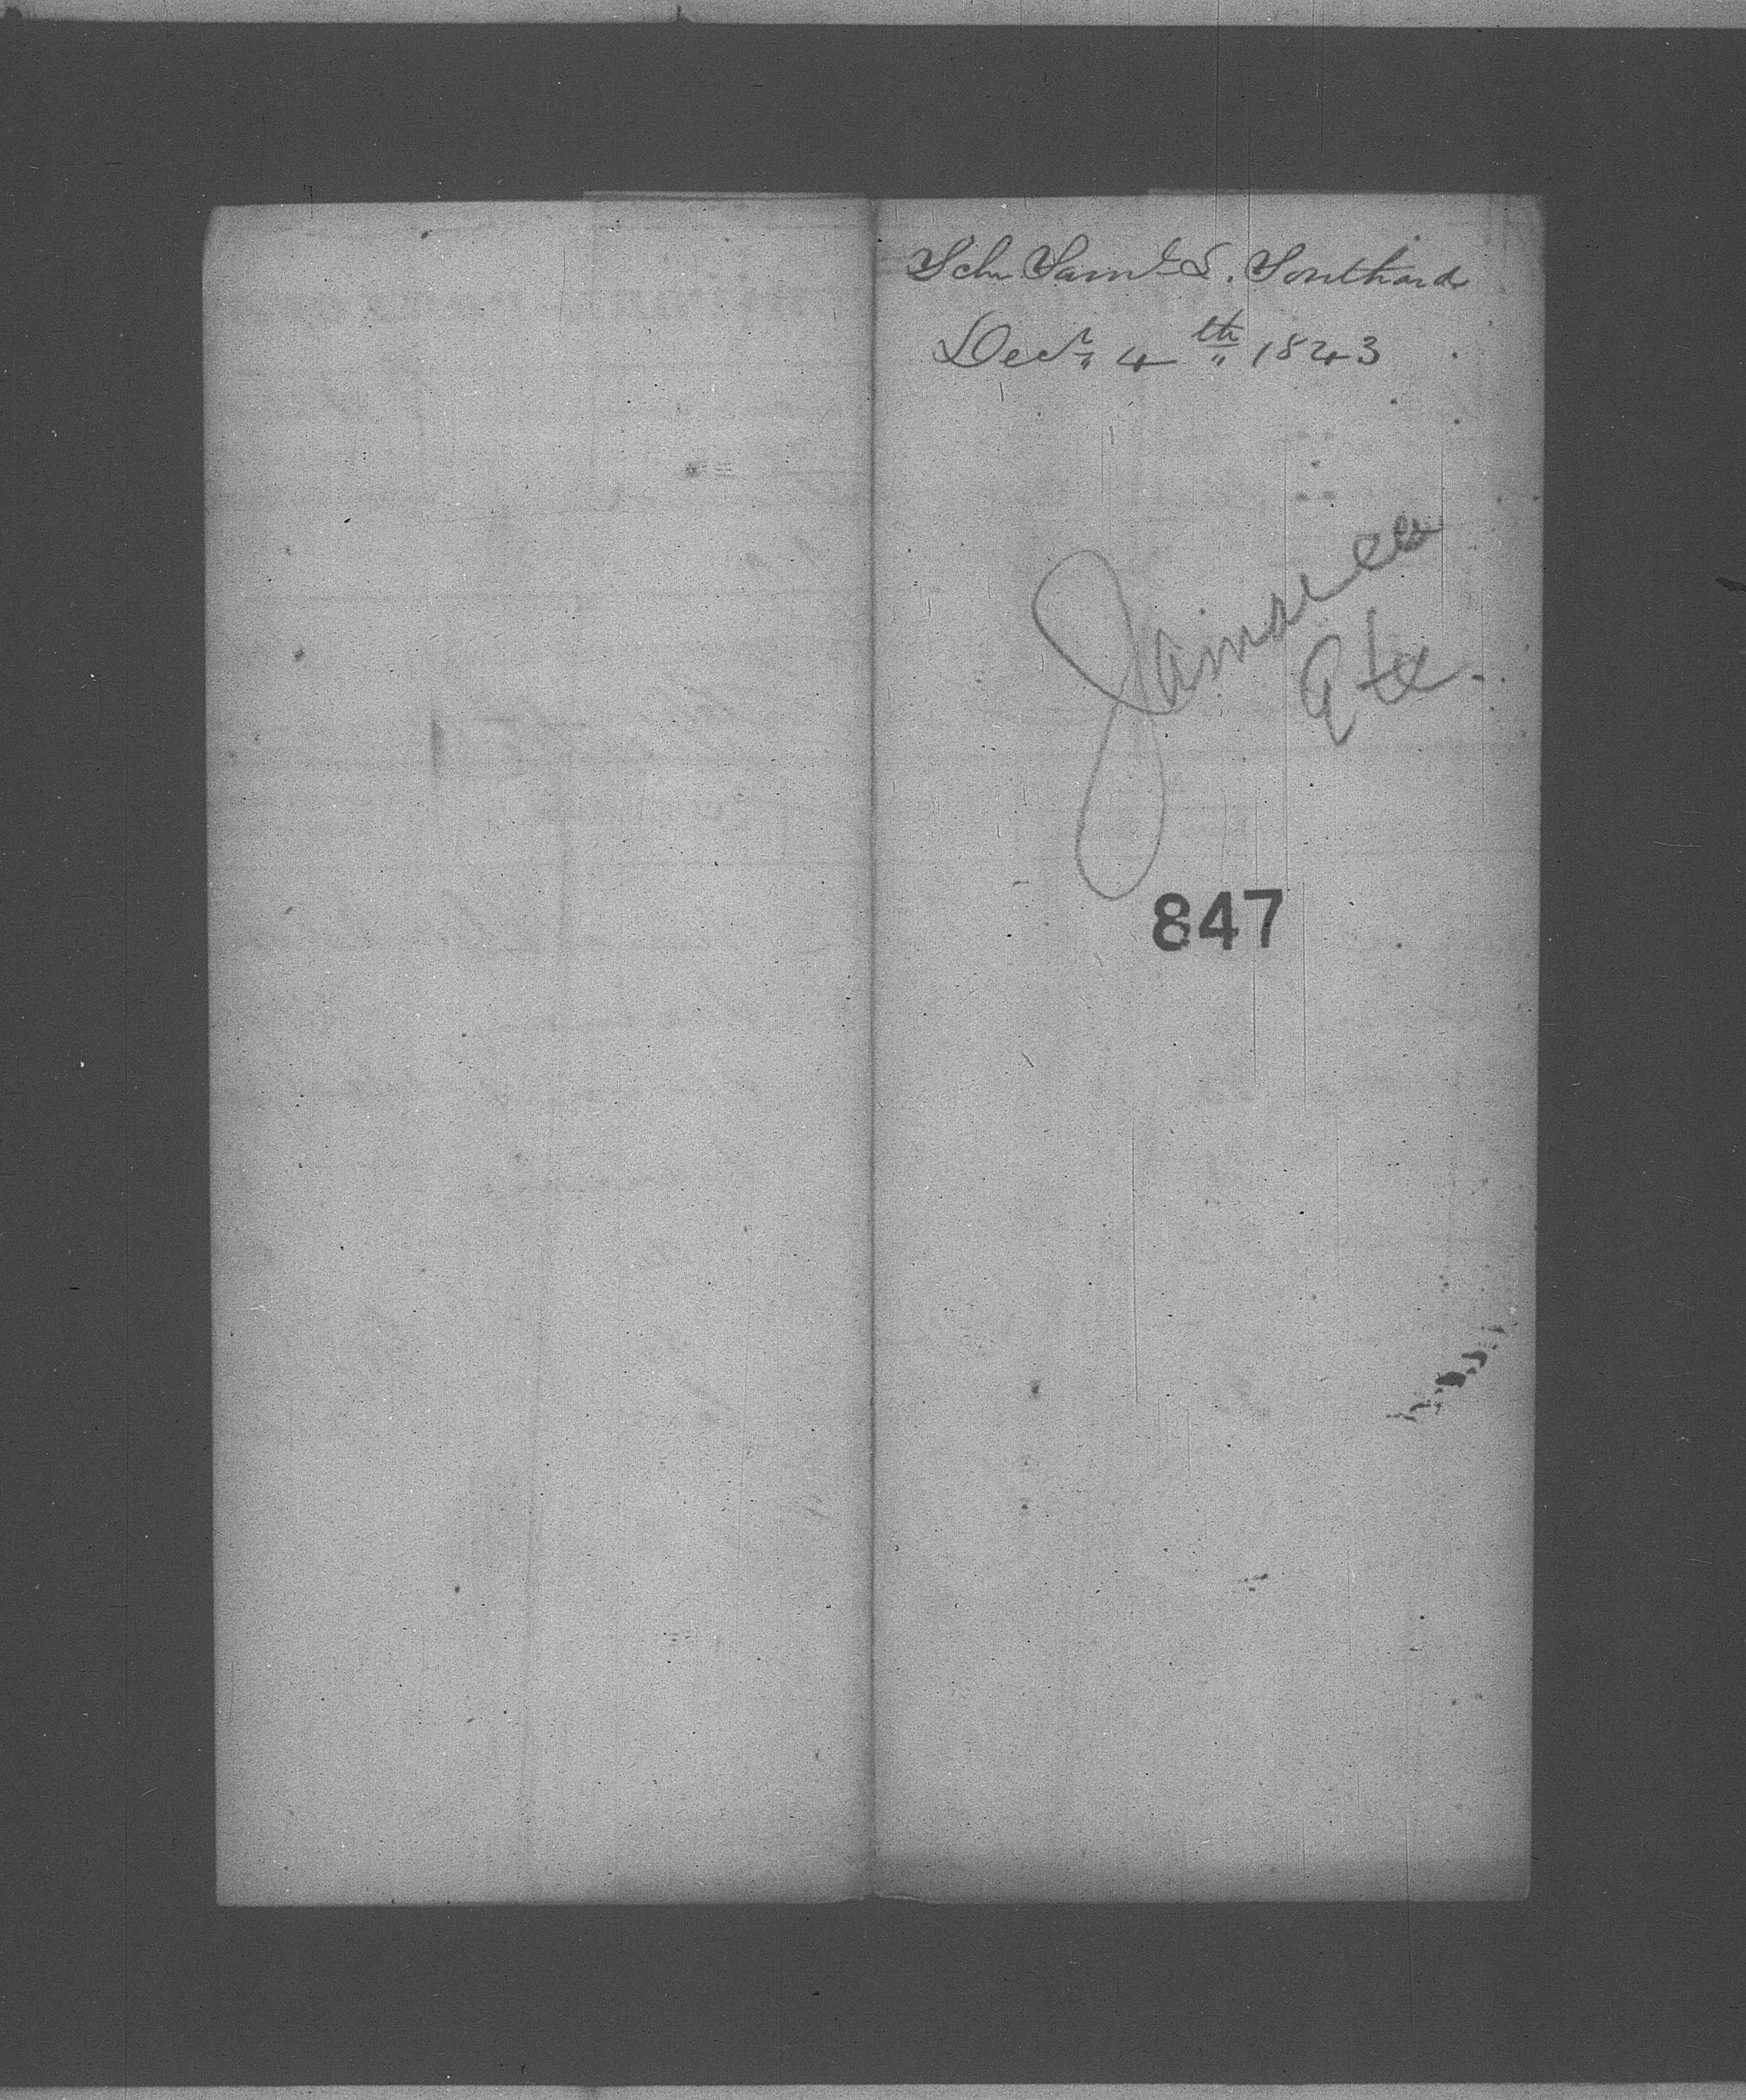 Sch Saml. L. Southard
Decr 4th 1843
Jamaica
847